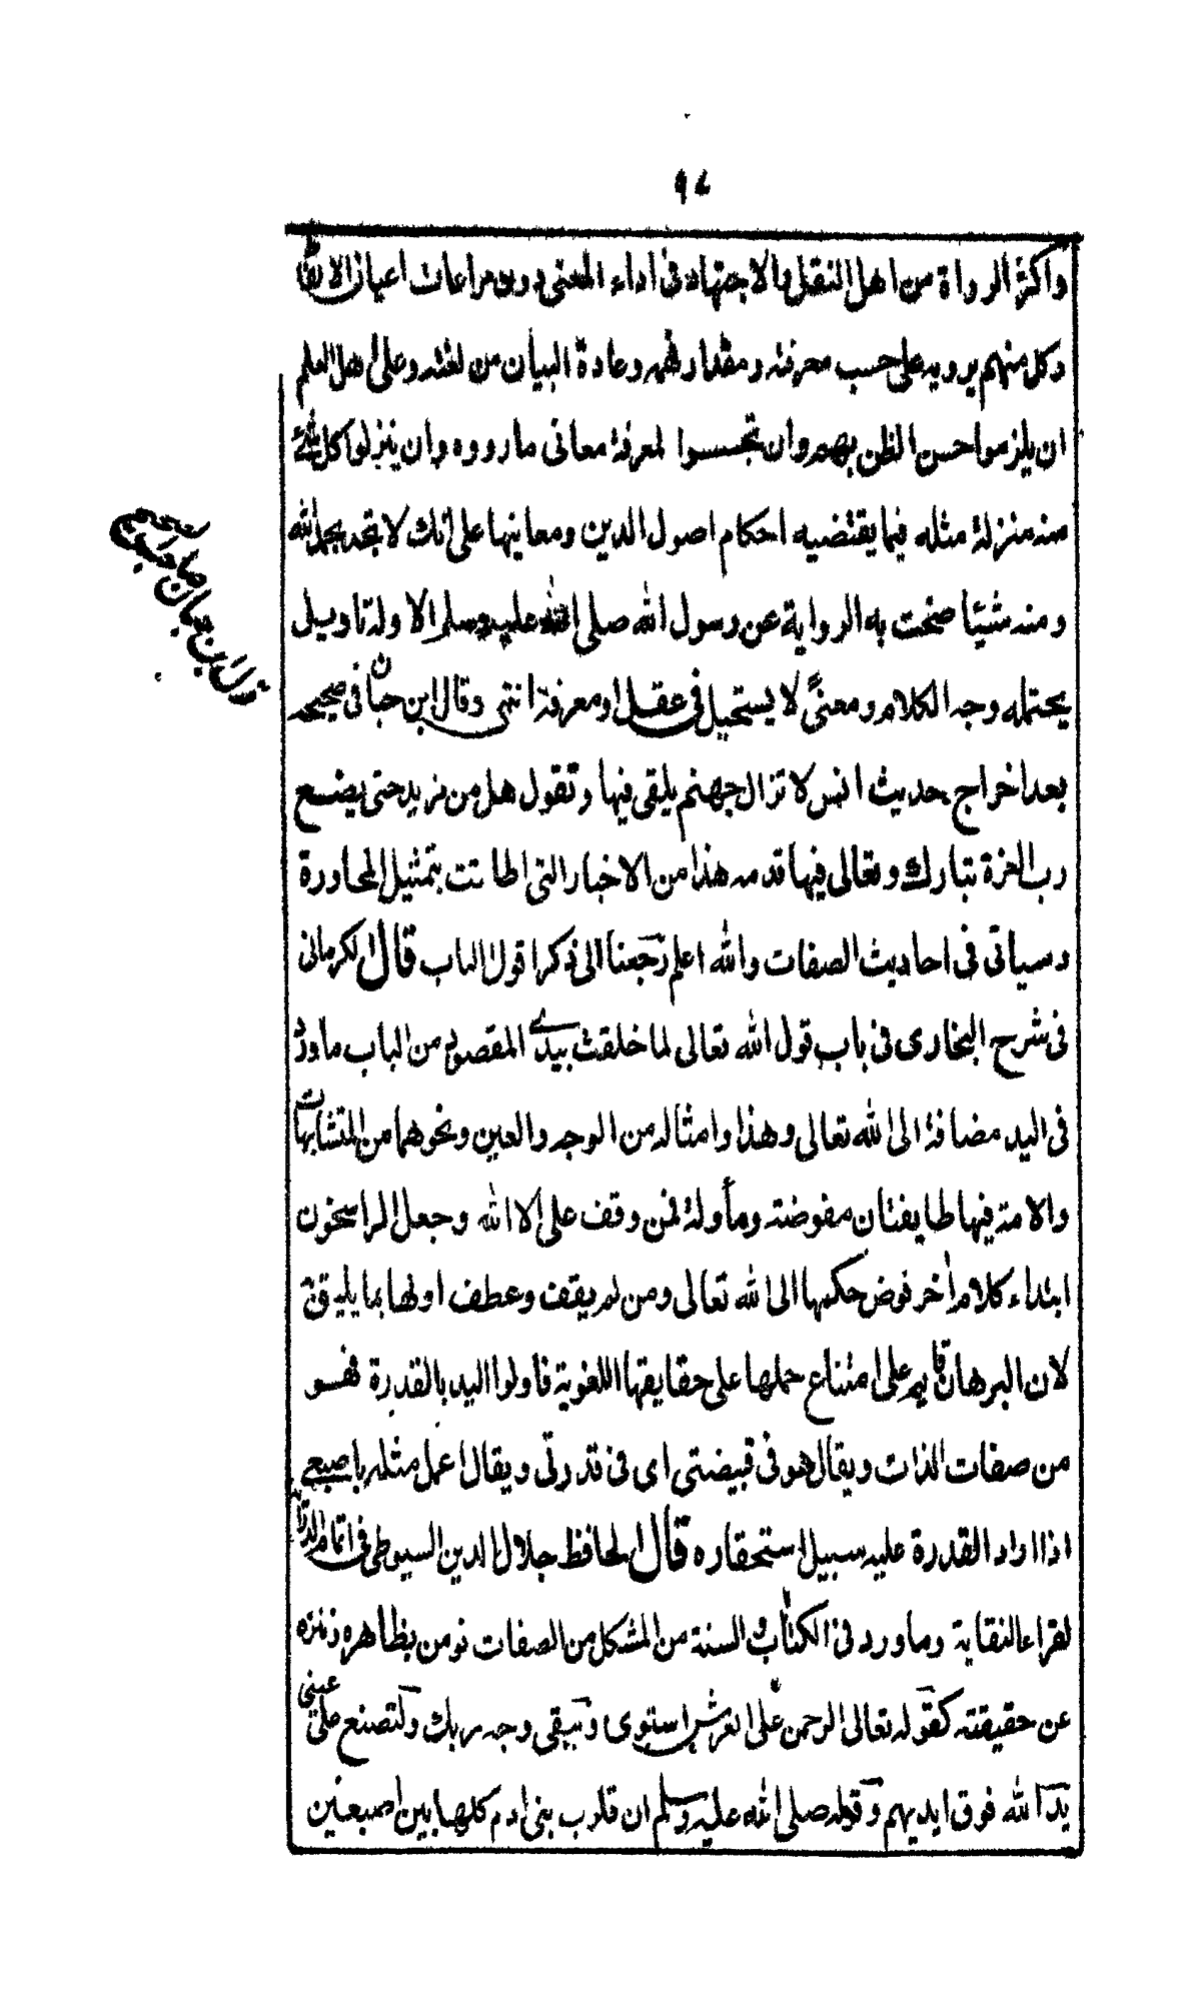 ٩٤
واكثر الرواة من اهل النقل والاجتهاد فى اداء المعنى دون مراعات اعيان الالفاظ
وكل منهم يرويه على حسب معرفته ومقدار فهمه وعادة البيان من لغته وعلى اهل العلم
ان يلزموا حسن الظن بهم وان تجسسوا لمعرفة معانى ما رووه وان ينزلوا كل شئ
منه منزلة مثله فيما يقتضيه احكام اصول الدين ومعانيها على انك لا تجد بحمد الله
ومنه شيئا صحت به الرواية عن رسول الله صلى الله عليه وسلم الا وله تاويل
يحتمله وجه الكلام ومعنىً لا يستحيل فى عقل او معرفة انتهى وقال ابن حبان فى صحيحه
بعد اخراج حديث انس لا تزال جهنم يلقى فيها وتقول هل من مزيد حتى يضع
رب العزة تبارك وتعالى فيها قدمه هذا من الاخبار التى اطلقت بتمثيل المجاورة
وسياتى فى احاديث الصفات والله اعلم رجعنا الى ذكر اقول الباب قال الكرمانى
فى شرح البخارى فى باب قول الله تعالى لما خلقت بيدى المقصود من الباب ما ورد
فى اليد مضافة الى الله تعالى وهذا وامثاله من الوجه والعين ونحوهما من المتشابهات
والامة فيها طايفتان مفوضة ومأولة فمن وقف على الا الله وجعل الراسخون
ابتداء كلام اخر فوض حكمها الى الله تعالى ومن لم يقف وعطف اولها بما يليق
لان البرهان قايم على امتناع حملها على حقايقها اللغوية فاولوا اليد بالقدرة فهو
من صفات الذات ويقال هو فى قبضتى اى فى قدرتى ويقال اعمل مثله باصبعى
اذا اراد القدرة عليه سبيل استحقاره قال الحافظ جلال الدين السيوطى فى اتمام الدراية
لقراء النقاية وما ورد فى الكتاب والسنة من المشكل من الصفات نومن بظاهره وننزه
عن حقيقته كقوله تعالى الرحمن على العرش استوى ويبقى وجه ربك ولتصنع على عينى
يد الله فوق ايديهم وقوله صلى الله عليه وسلم ان قلوب بنى ادم كلها بين اصبعين
قول ابن حبان صاحب
الصحيح